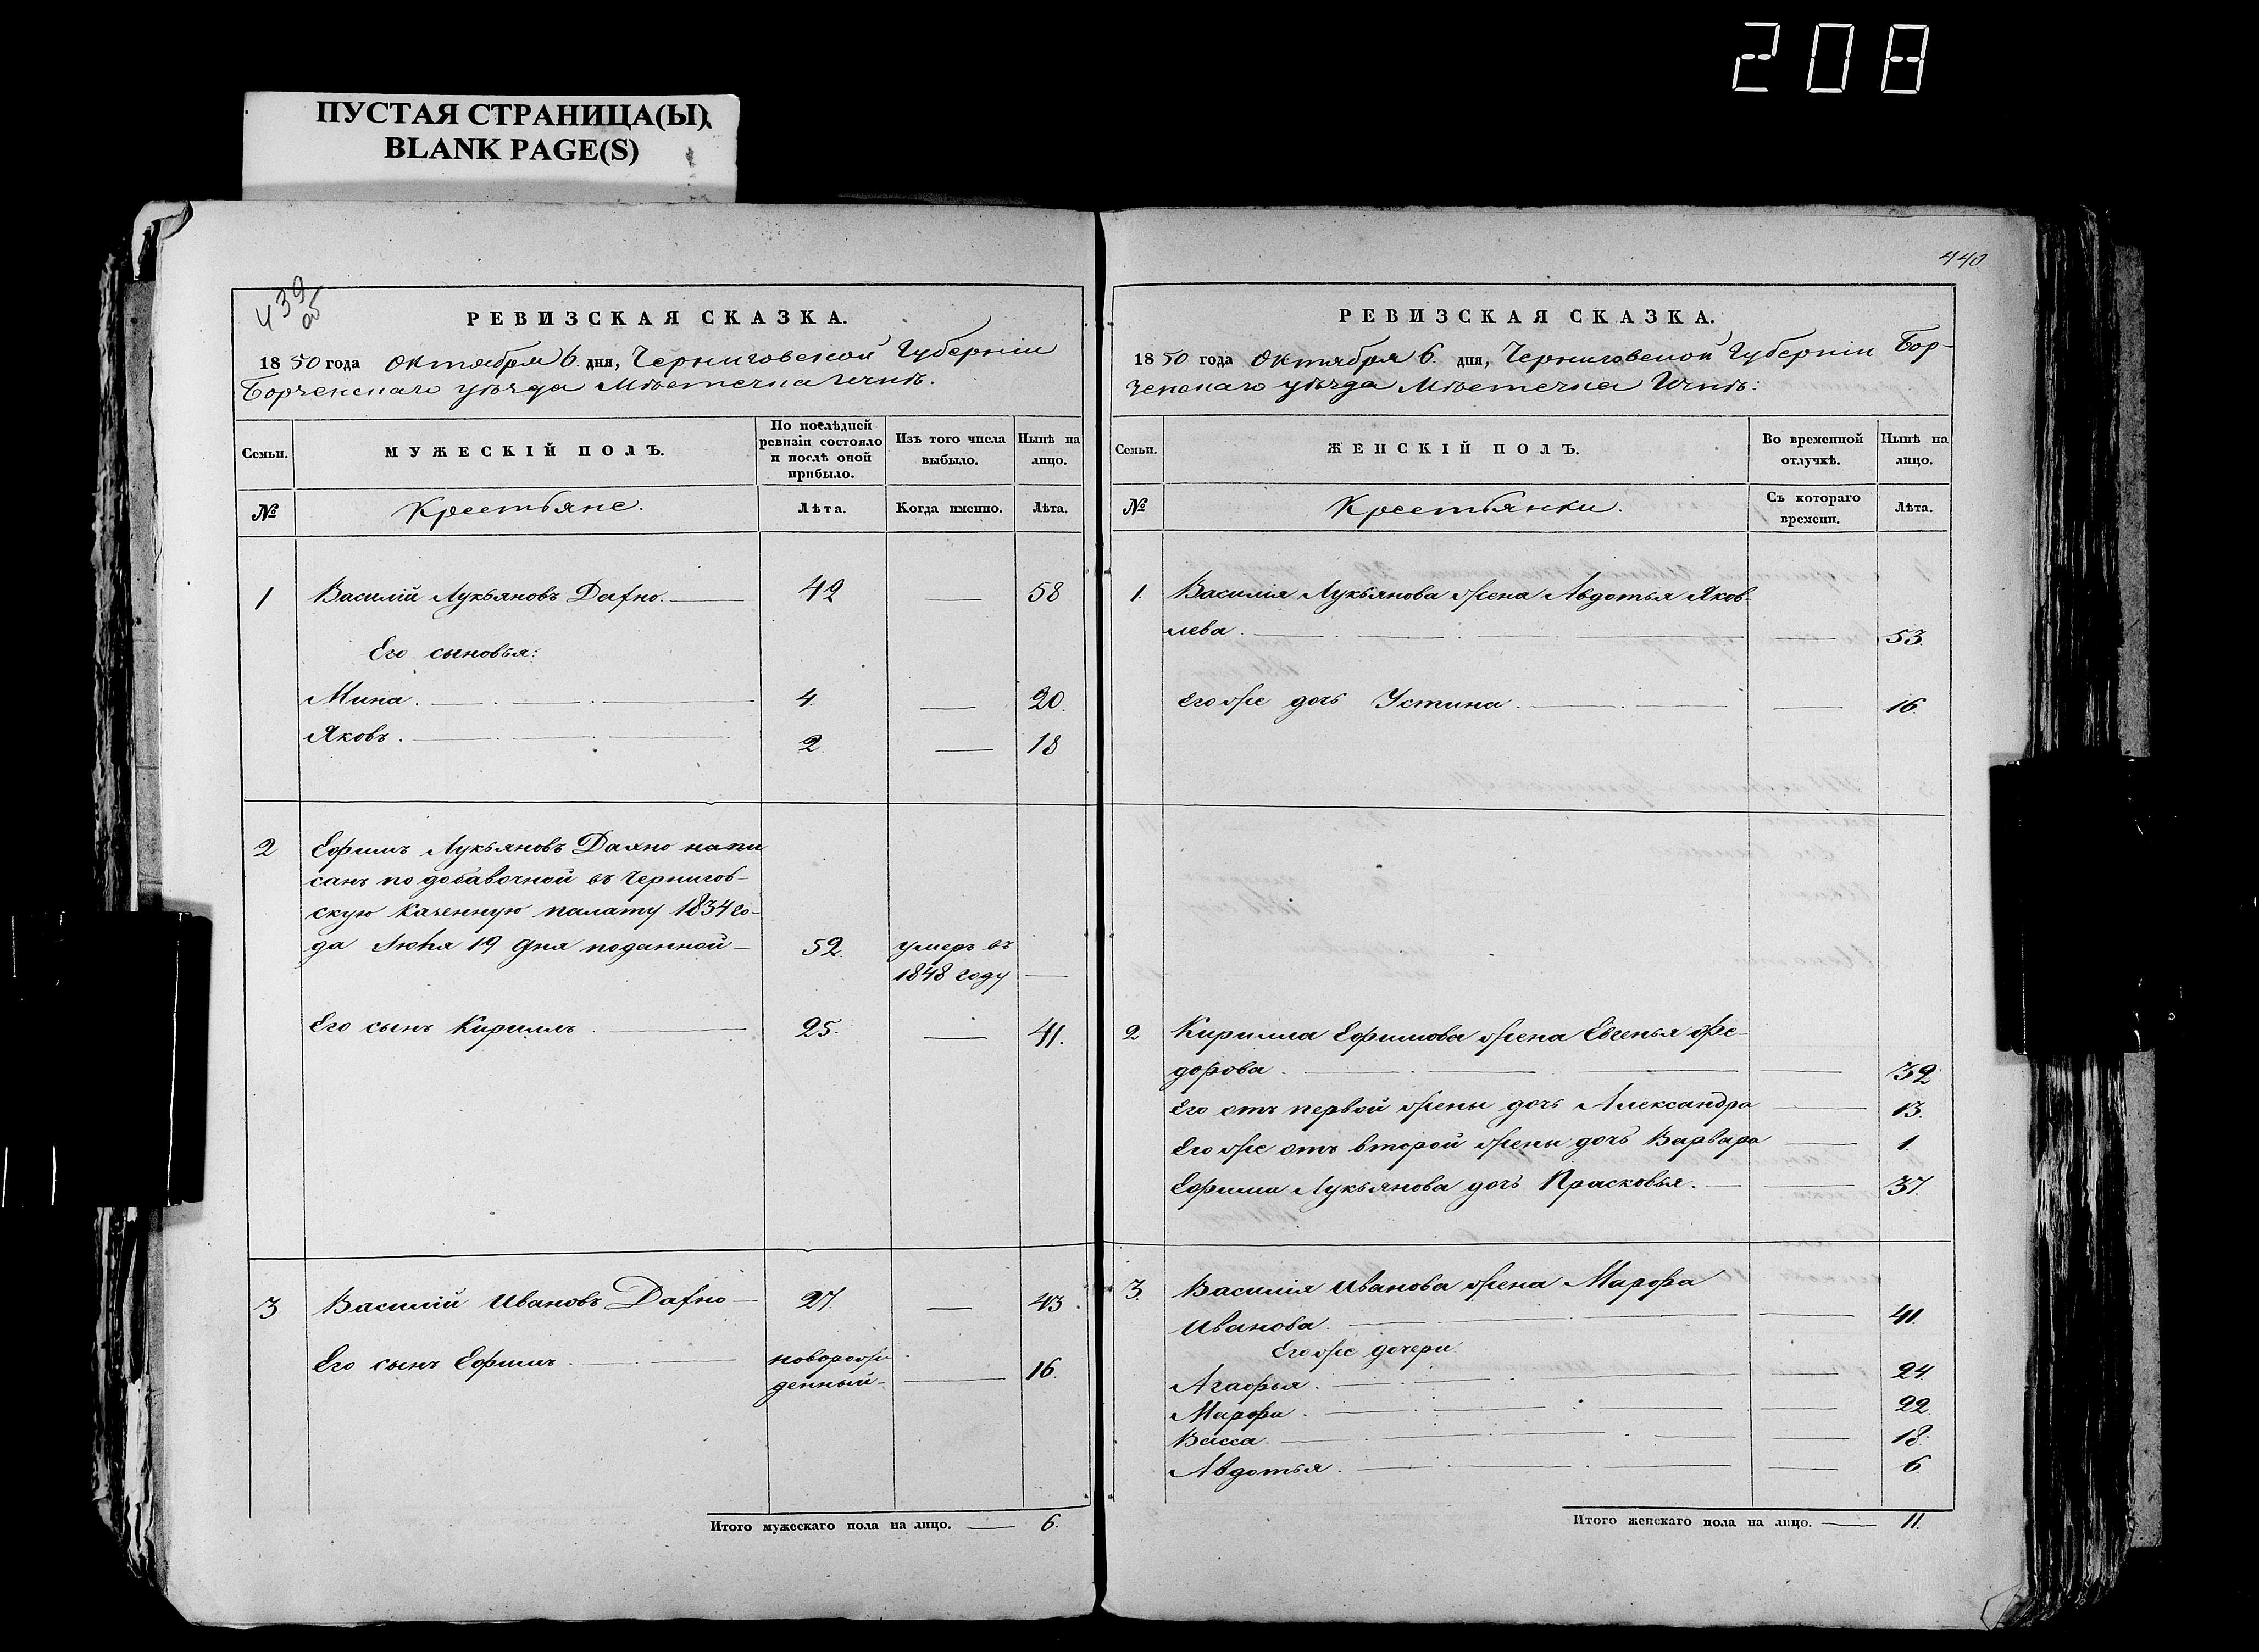 208
ПУСТАЯ СТРАНИЦА(Ы)
BLANK PAGE(S)
439
об
РЕВИЗСКАЯ СКАЗКА.
1850 года Октября 6. дня, Черниговской Губерніи
Борзенскаго уѣзда Мѣстечка Ични.
Семьи.
МУЖЕСКІЙ ПОЛЪ.
По послѣдней ревизіи состояло и послѣ оной прибыло.
Изъ того числа выбыло.
Нынѣ на лицо.
№
Крестьяне.
Лѣта.
Когда именно.
Лѣта.
1 Василій Лукьяновъ Дахно. 42 58
Его сыновья:
Мина. 4. 20.
Яковъ. 2. 18
2 Ефимъ Лукьяновъ Дахно напи
санъ по добавочной въ Чернигов-
скую Казенную палату 1834 го-
да Июня 19 дня поданной 52. умеръ въ
1848 году
Его сынъ Кириллъ. 25. 41.
3 Василій Ивановъ Дахно 27. 43.
Его сынъ Ефимъ. новорож
денный 16.
Итого мужескаго пола на лицо. 6.
440.
РЕВИЗСКАЯ СКАЗКА.
1850 года Октября 6. дня, Черниговской Губерніи Бор-
зенскаго уѣзда Мѣстечка Ични:
Семьи.
ЖЕНСКІЙ ПОЛЪ.
Во временной отлучкѣ.
Нынѣ на лицо.
№
Крестьянки.
Съ котораго времени.
Лѣта.
1. Василія Лукьянова жена Авдотья Яков-
лева. 53.
Его же дочь Устина. 16.
2 Кирилла Ефимова жена Евгенья Фе-
дорова. 32
Его отъ первой жены дочь Александра 13.
Его же отъ второй жены дочь Варвара 1.
Ефима Лукьянова дочь Прасковья. 37.
3. Василія Иванова жена Марфа
Иванова. 41.
Его же дочери
Агафья. 24.
Марфа. 22.
Васса. 18.
Авдотья. 6
Итого женскаго пола на лицо. 11.